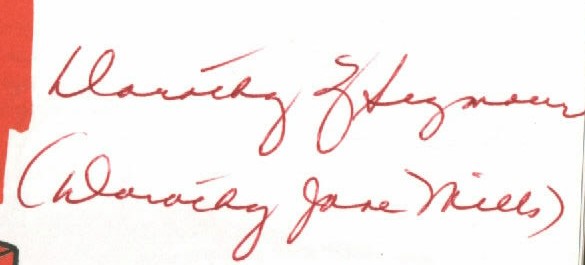 Dorothy Z Seymour
(Dorothy Jane Mills)